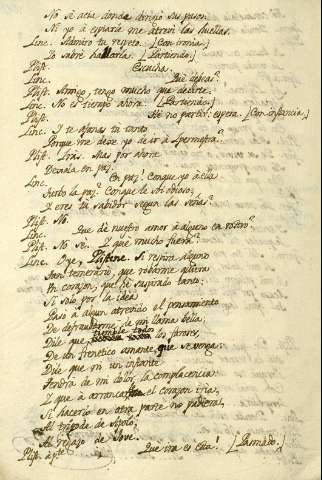 No sé acia donde dirijió sus pasos.
Ni yo á espiarle me atreví las huellas.
Linc. Admiro tu respeto. [Con ironia]
Yo sabré hallarla. [Partiendo]
Plist. Escucha.
Linc. Qué deseas?
Plist. Amigo, tengo mucho que decirte.
Linc. No es tiempo ahora. [Partiendo]
Plist. No partir: espera. [Con instancia]
Linc. Y te afanas tu tanto
Porque me deje yo de ir á Ipermestra?
Plist. Irás. Mas por ahora
Dexala en paz.
Linc. En paz! Conque yo á ella
Turbo la paz? Conque le soi odioso,
Y eres tu sabidor segun las señas?
Plist. No.
Linc. Que de nuestro amor á alguno en rostro?
Plist. No sé. Y qué mucho fuera?
Linc. Oye, Plistene. Si respira alguno
Tan temerario, que robarme quiera
Un corazon, que hé suspirado tanto;
Si solo por la idea
Pasó á algun atrevido el pensamiento
De defraudarme de mi llama bella;
Dile que tiemble todos los furores,
De un frenetico amante, que se venga.
Dile que ni un instante
Tendrá de mi dolor la complacencia:
Y que á arrancarle el corazon iria,
Si hacerlo en otra parte no pudiera,
Al tripode de Apolo,
Al regazo de Jove.
Plist. á pte. Que ira es esta! [Pasmado.]